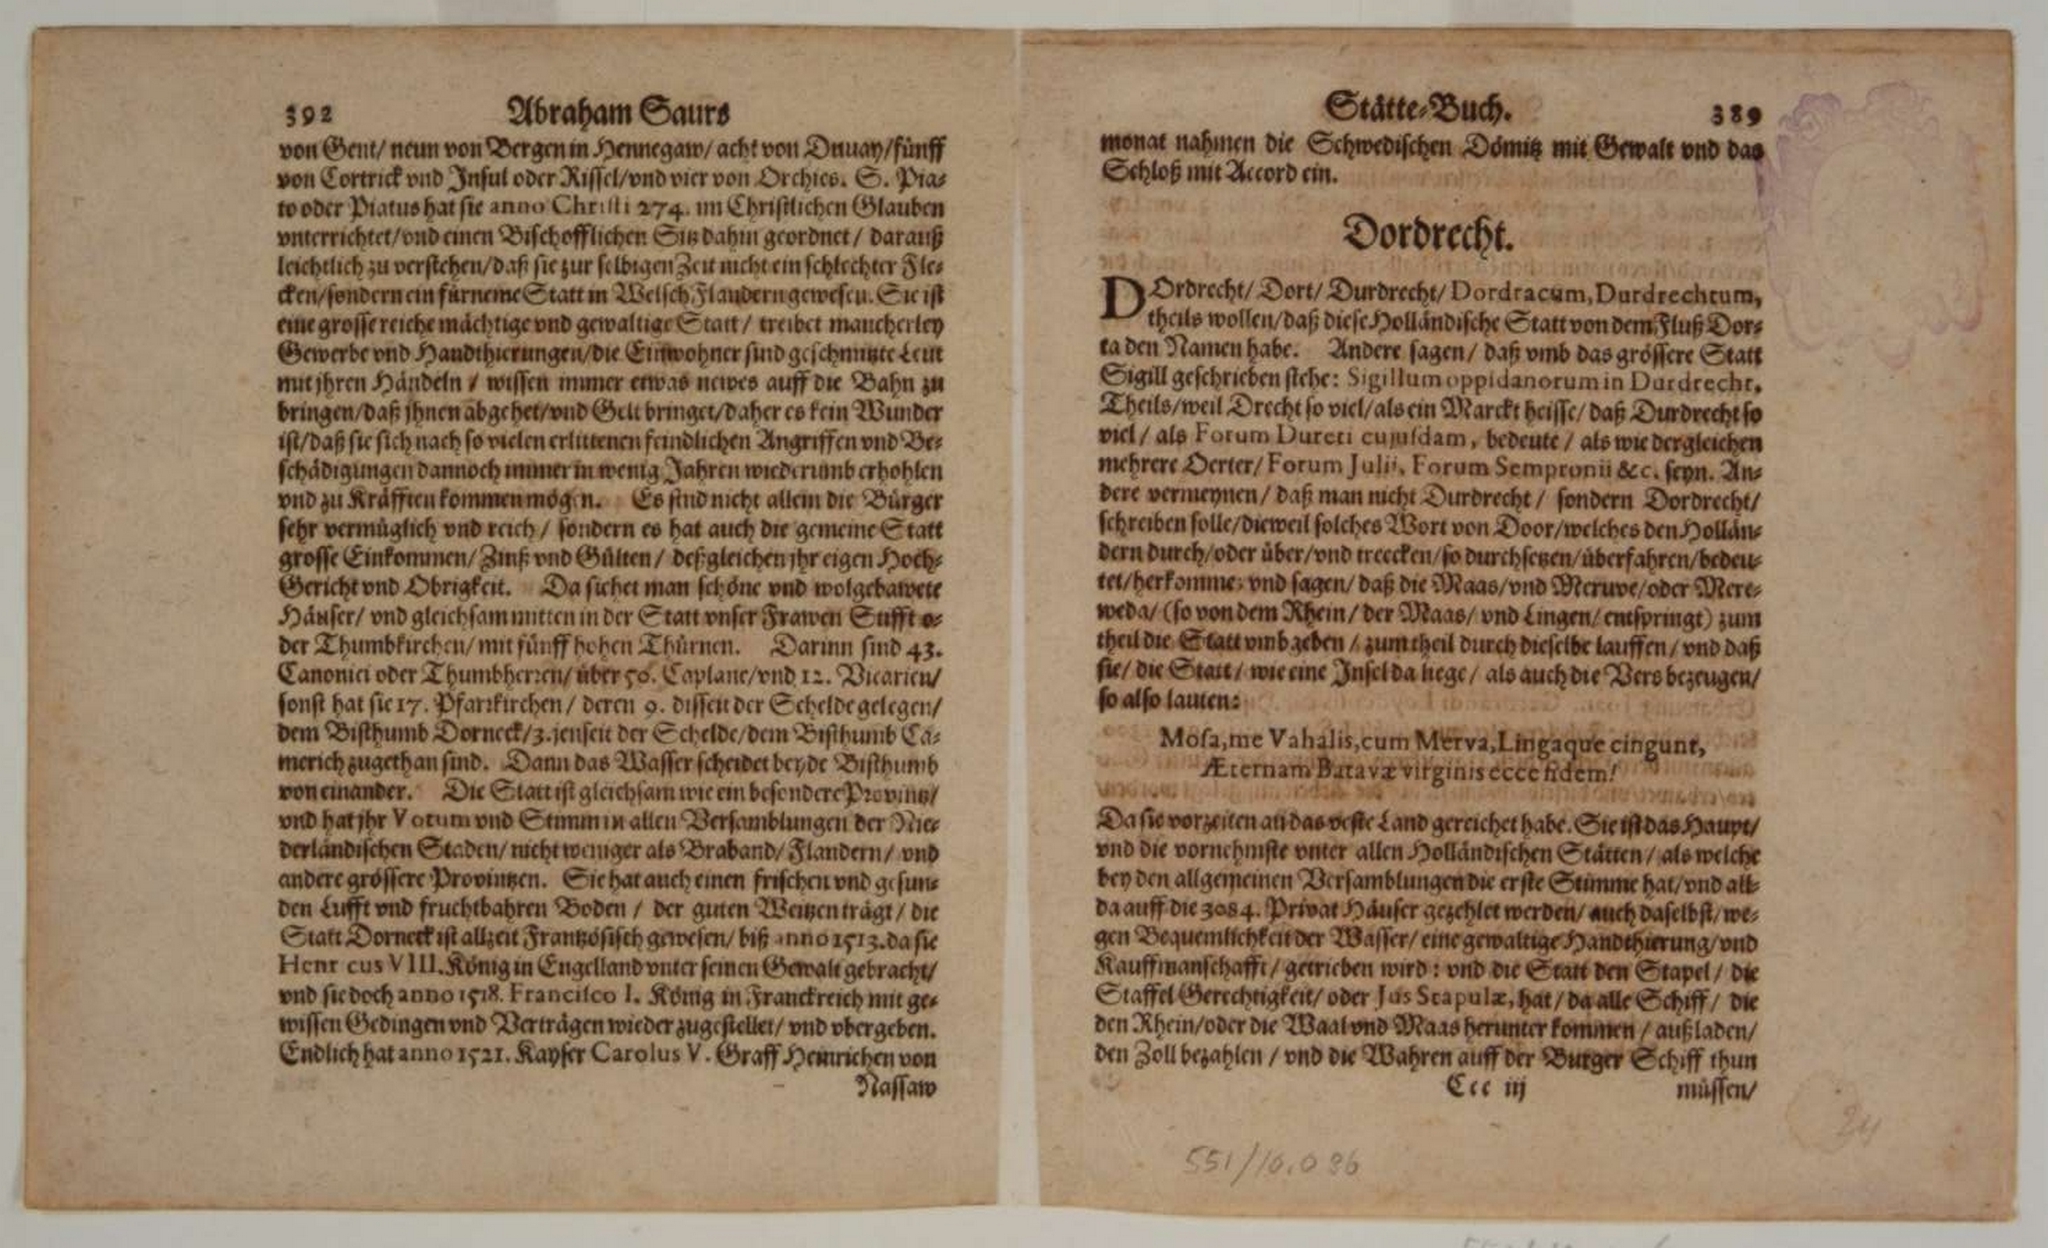 392 Abraham Saurs
von Gent/ neun von Bergen in Hennegaw/ acht von Dnuay/fünff
von Cortrick vnd Insul oder Rissel/vnd vier von Orchies. S. Pia-
to oder Piatus hat sie anno Christi 274. im Christlichen Glauben
vnterrichtet/vnd einen Bischofflichen Sitz dahin geordnet/ darauß
leichtlich zu verstehen/daß sie zur selbigen Zeit nicht ein schlechter Fle-
cken/sondern ein fürneme Statt in Welsch Flandern gewesen. Sie ist
eine grosse reiche mächtige vnd gewaltige Statt/ treibet mancherley
Gewerbe vnd Handthierungen/die Einwohner sind geschmitzte Leut
mit jhren Händeln/ wissen immer etwas newes auff die Bahn zu
bringen/daß jhnen abgehet/vnd Gelt bringet/daher es kein Wunder
ist/daß sie sich nach so vielen erlittenen feindlichen Angriffen vnd Be-
schädigungen dannoch immer in wenig Jahren wiederumb erhohlen
vnd zu Kräfften kommen mögen. Es sind nicht allein die Bürger
sehr vermüglich vnd reich/ sondern es hat auch die gemeine Statt
grosse Einkommen/ Zinß vnd Gülten/ deßgleichen jhr eigen Hoch-
Gericht vnd Obrigkeit. Da siehet man schöne vnd wolgebawete
Häuser/ vnd gleichsam mitten in der Statt vnser Frawen Stifft o-
der Thumbkirchen/ mit fünff hohen Thürnen. Darinn sind 43.
Canonici oder Thumbherren/ über 50. Caplane/vnd 12. Vicarien/
sonst hat sie 17. Pfarrkirchen/ deren 9. disseit der Schelde gelegen/
dem Bisthumb Dorneck/3. jenseit der Schelde/dem Bisthumb Ca-
merich zugethan sind. Dann das Wasser scheidet beyde Bisthumb
von einander. Die Statt ist gleichsam wie ein besondere Provintz/
vnd hat jhr Votum vnd Stimm in allen Versamblungen der Nie-
derländischen Staden/ nicht weniger als Braband/ Flandern/ vnd
andere grössere Provintzen. Sie hat auch einen frischen vnd gesun-
den Lufft vnd fruchtbahren Boden/ der guten Weitzen trägt/ die
Statt Dorneck ist allzeit Frantzösisch gewesen/ biß anno 1513. da sie
Henricus VIII. König in Engelland vnter seinen Gewalt gebracht/
vnd sie doch anno 1518. Francisco I. König in Franckreich mit ge-
wissen Gedingen vnd Verträgen wieder zugestellet/ vnd vbergeben.
Endlich hat anno 1521. Kayser Carolus V. Graff Heinrichen von
Nassaw
Stätte-Buch. 389
monat nahmen die Schwedischen Dömitz mit Gewalt vnd das
Schloß mit Accord ein.
Dordrecht.
DOrdrecht/ Dort/ Durdrecht/ Dordracum, Durdrechtum,
theils wollen/daß diese Holländische Statt von dem Fluß Dor-
ta den Namen habe. Andere sagen/ daß vmb das grössere Statt
Sigill geschrieben stehe: Sigillum oppidanorum in Durdrecht.
Theils/weil Drecht so viel/als ein Marckt heisse/ daß Durdrecht so
viel/ als Forum Dureti cujusdam, bedeute/ als wie dergleichen
mehrere Oerter/ Forum Julii, Forum Sempronii &c. seyn. An-
dere vermeynen/ daß man nicht Durdrecht/ sondern Dordrecht/
schreiben solle/dieweil solches Wort von Door/welches den Hollän-
dern durch/oder über/vnd treecken/so durchsetzen/überfahren/bedeu-
tet/herkomme: vnd sagen/ daß die Maas/vnd Meruve/oder Mere-
weda/ (so von dem Rhein/ der Maas/ vnd Lingen/ entspringt) zum
theil die Statt vmbgeben/ zum theil durch dieselbe lauffen/ vnd daß
sie/ die Statt/ wie eine Insel da liege/ als auch die Vers bezeugen/
so also lauten:
Mosa, me Vahalis, cum Merva, Lingaque cingunt,
Æternam Batavæ virginis ecce fidem!
Da sie vorzeiten an das veste Land gereichet habe. Sie ist das Haupt/
vnd die vornehmste vnter allen Holländischen Stätten/ als welche
bey den allgemeinen Versamblungen die erste Stimme hat/vnd all-
da auff die 3084. Privat Häuser gezehlet werden/ auch daselbst/ we-
gen Bequemlichkeit der Wasser/ eine gewaltige Handthierung/vnd
Kauffmanschafft/ getrieben wird: vnd die Statt den Stapel/ die
Staffel Gerechtigkeit/ oder Jus Stapulæ, hat/ da alle Schiff/ die
den Rhein/oder die Waal vnd Maas herunter kommen/ außladen/
den Zoll bezahlen/ vnd die Wahren auff der Burger Schiff thun
Ccc iij müssen/
551/10.086
24